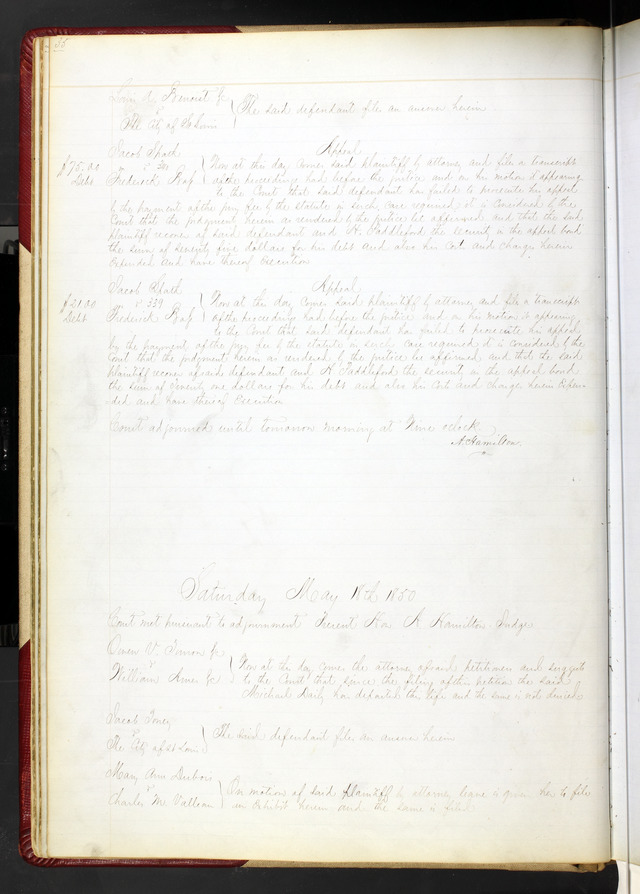 The said defendant files an answer herein
The City of St Louis
Jacob Spath
Appeal
$75.00
Debt
Now at this day comes said plaintiff by attorney and files a transcript
Frederick
of the proceedings had before the justice and on his motion it appearing
to the Court that said defendant has failed to prosecute his appeal
by the payment of the jury fee by the statute in such case required it is considered by the
Court that the judgment herein as rendered by the justice be affirmed and that the said
plaintiff recover of said defendant and H. Paddleford the security in the appeal bond
the sum of seventy five dollars for his debt and also his costs and charges herein
expended and have thereof Execution
Jacob Spath
Appeal
Debt
vs 339
Now at this day comes said plaintiff by attorney and files a transcript
Frederick
of the proceedings had before the justice and on his motion it appearing
to the Court that said defendant has failed to prosecute his appeal
by the payment of the jury fee by the statute in such case required it is considered by the
Court that the judgment herein as rendered by the justice be affirmed and that the said
plaintiff recover of said defendant and H Paddleford the security in the appeal bond
the sum of Seventy one dollars for his debt and also his costs and charges herein Expen
ded and have thereof Execution
Court adjourned until tomorrow morning at Nine oclock
A. Hamilton
Saturday May 18th 1850
Court met pursuant to adjournment Present Hon A Hamilton Judge
Owen V.
William
Now at this day comes the attorney of said petitioners and suggests
to the Court that since the filing of this petition the said
Michael Daily has departed this life and the same is not denied
Jacob
vs
The City of St Louis
The said defendant files an answer herein
Mary Ann Dubois
vs
Charles Mc
On motion of said plaintiff by attorney leave is given her to file
an Exhibit herein and the same is filed